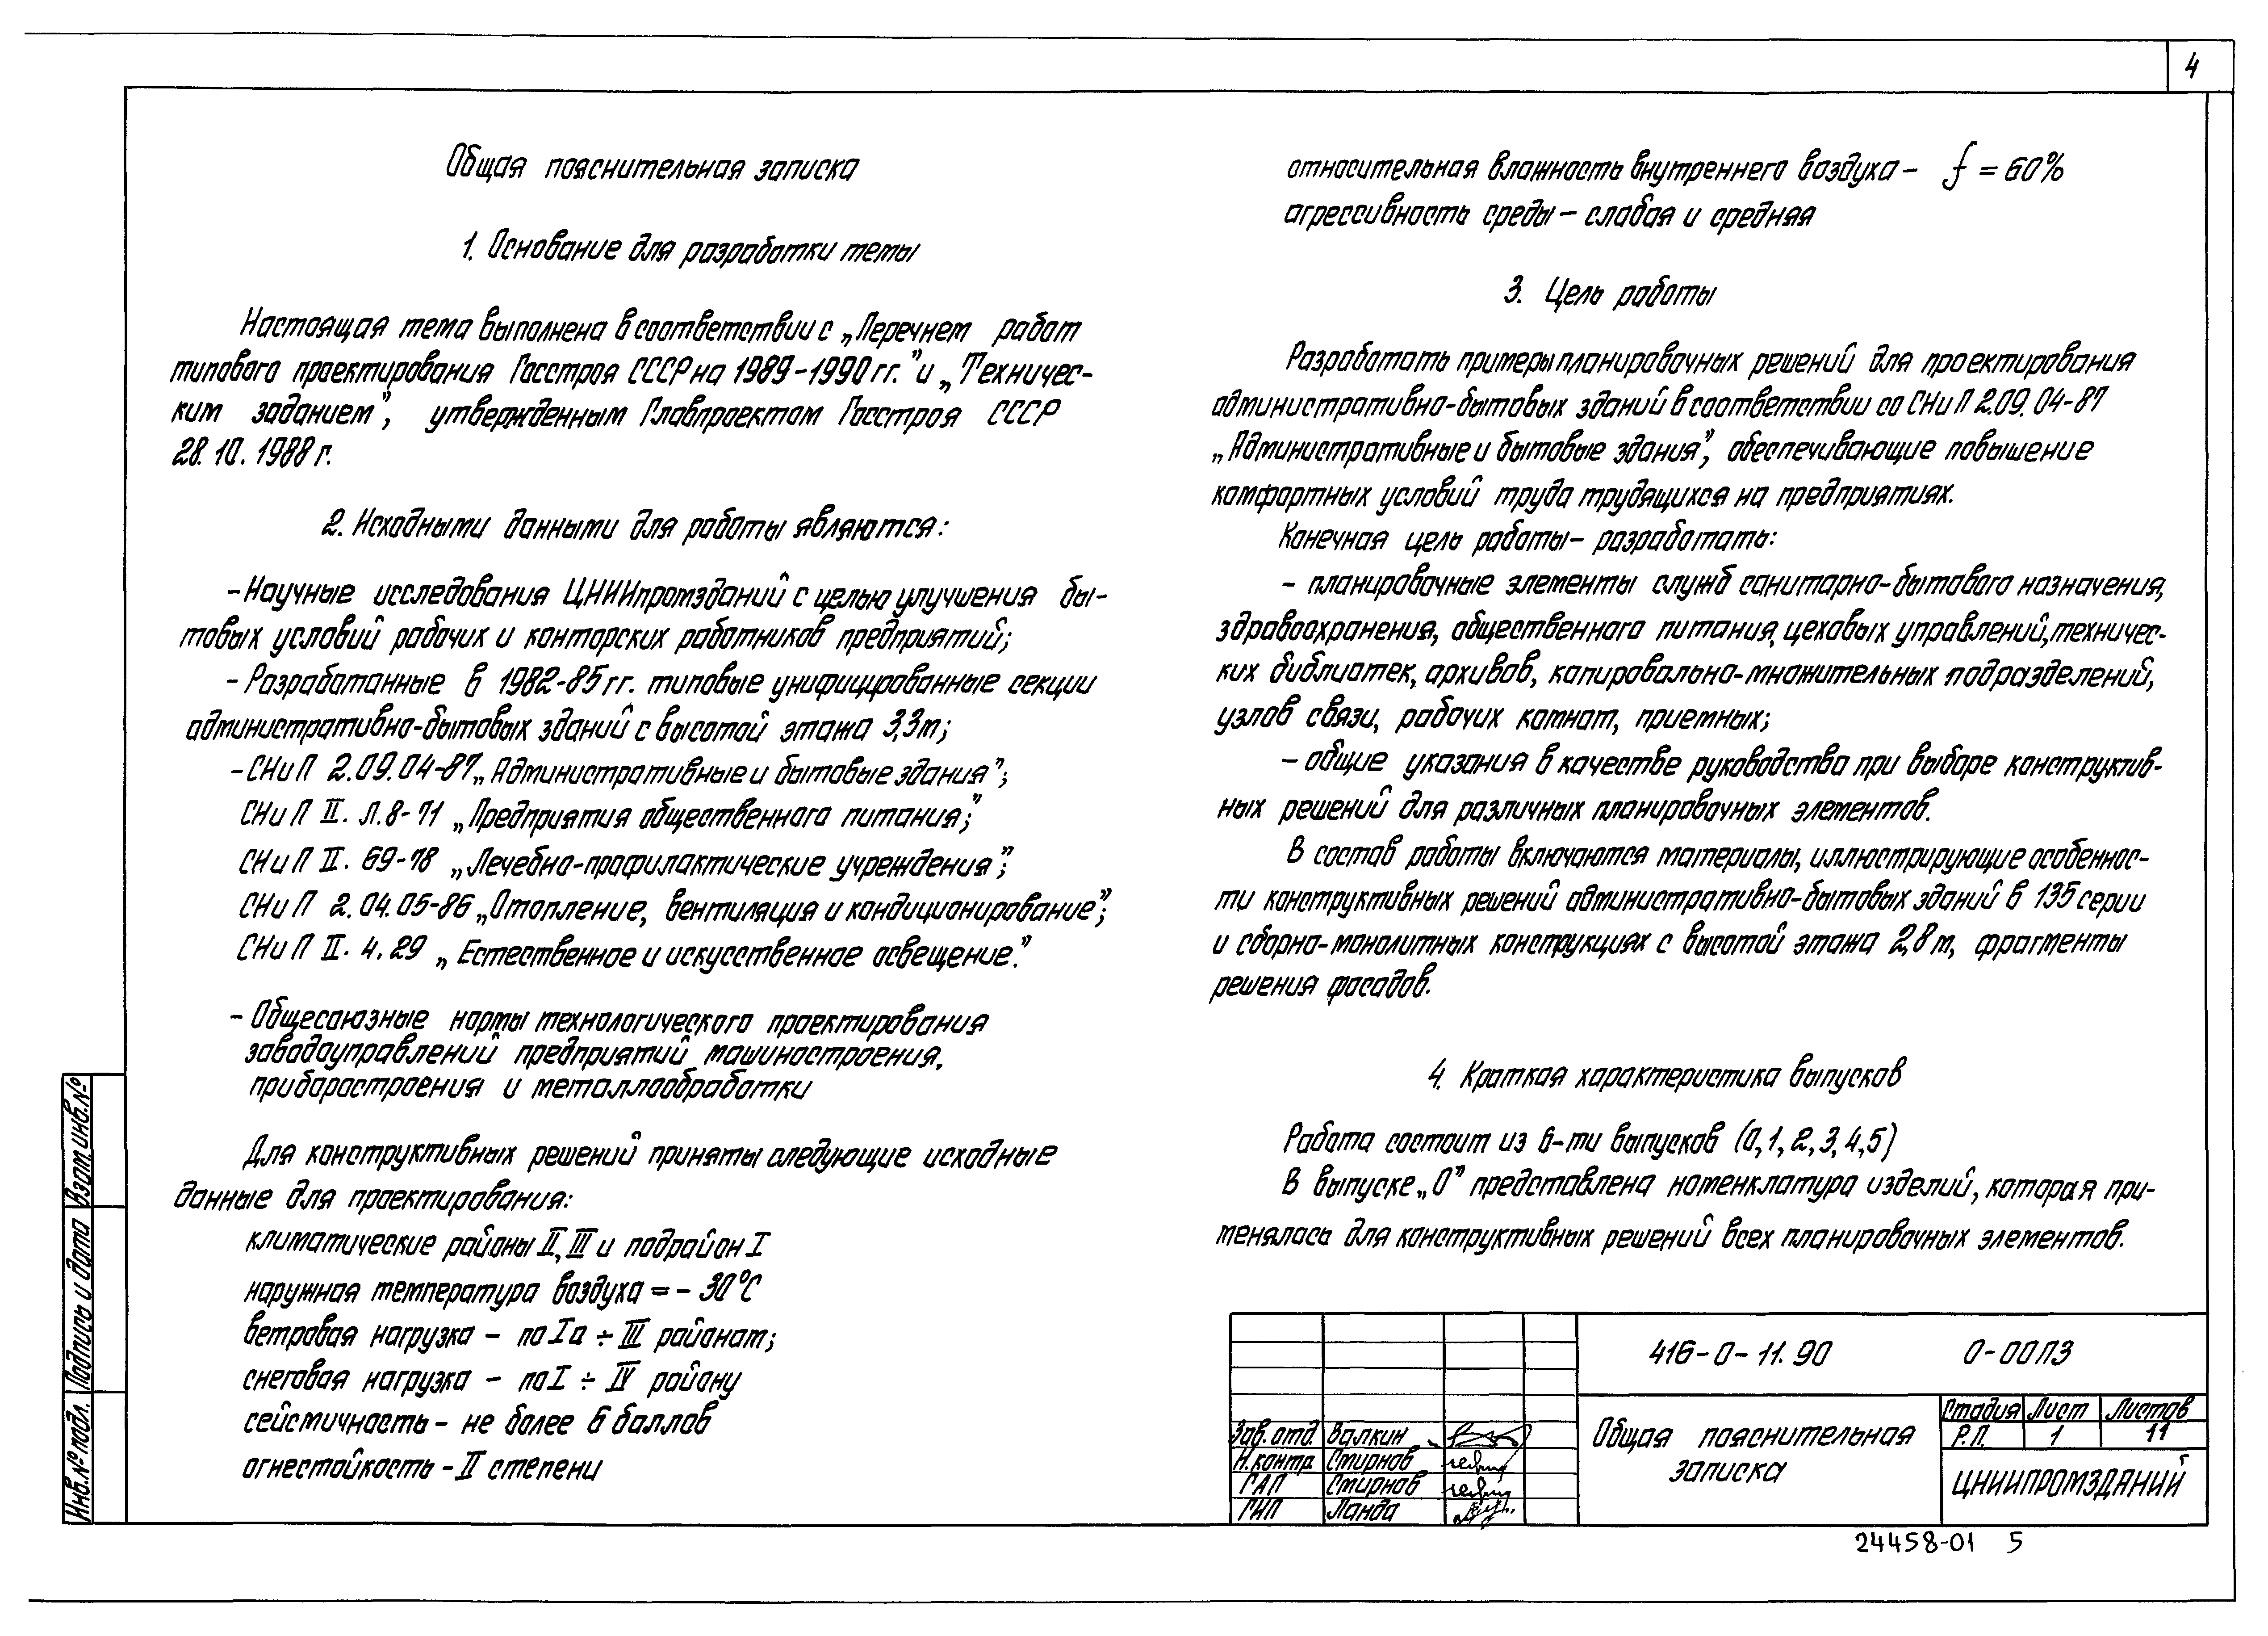 4
Общая пояснительная записка
1. Основание для разработки темы
Настоящая тема выполнена в соответствии с „Перечнем работ
типового проектирования Госстроя СССР на 1989-1990 гг." и „Техничес-
ким заданием", утвержденным Главпроектом Госстроя СССР
28.10.1988 г.
2. Исходными данными для работы являются:
- Научные исследования ЦНИИпромзданий с целью улучшения бы-
товых условий рабочих и конторских работников предприятий;
- Разработанные в 1982-85 гг. типовые унифицированные секции
административно-бытовых зданий с высотой этажа 3,3м;
- СНиП 2.09.04-87 „Административные и бытовые здания";
СНиП II. Л.8-71 „Предприятия общественного питания";
СНиП II. 69-78 „Лечебно-профилактические учреждения";
СНиП 2.04.05-86 „Отопление, вентиляция и кондиционирование";
СНиП II. 4.29 „Естественное и искусственное освещение."
- Общесоюзные нормы технологического проектирования
заводоуправлений предприятий машиностроения,
приборостроения и металлообработки
Для конструктивных решений приняты следующие исходные
данные для проектирования:
климатические районы II, III и подрайон I
наружная температура воздуха = - 30°С
ветровая нагрузка - по Iа ÷ III районам;
снеговая нагрузка - по I ÷ IV району
сейсмичность - не более 6 баллов
огнестойкость - II степени
относительная влажность внутреннего воздуха - f = 60%
агрессивность среды - слабая и средняя
3. Цель работы
Разработать примеры планировочных решений для проектирования
административно-бытовых зданий в соответствии со СНиП 2.09.04-87
„Административные и бытовые здания", обеспечивающие повышение
комфортных условий труда трудящихся на предприятиях.
Конечная цель работы - разработать:
- планировочные элементы служб санитарно-бытового назначения,
здравоохранения, общественного питания, цеховых управлений, техничес-
ких библиотек, архивов, копировально-множительных подразделений,
узлов связи, рабочих комнат, приемных;
- общие указания в качестве руководства при выборе конструктив-
ных решений для различных планировочных элементов.
В состав работы включаются материалы, иллюстрирующие особеннос-
ти конструктивных решений административно-бытовых зданий в 135 серии
и сборно-монолитных конструкциях с высотой этажа 2,8 м, фрагменты
решения фасадов.
4. Краткая характеристика выпусков
Работа состоит из 6-ти выпусков (0,1,2,3,4,5)
В выпуске „0" представлена номенклатура изделий, которая при-
менялась для конструктивных решений всех планировочных элементов.
416-0-11.90 0-00ПЗ
Зав. отд. Валкин
Н.контр Смирнов
ГАП Смирнов
ГИП Ланда
Общая пояснительная
записка
Стадия Лист Листов
Р.П. 1 11
ЦНИИПРОМЗДАНИЙ
Взам.инв.№
Подпись и дата
Инв.№ подл.
24458-01 5